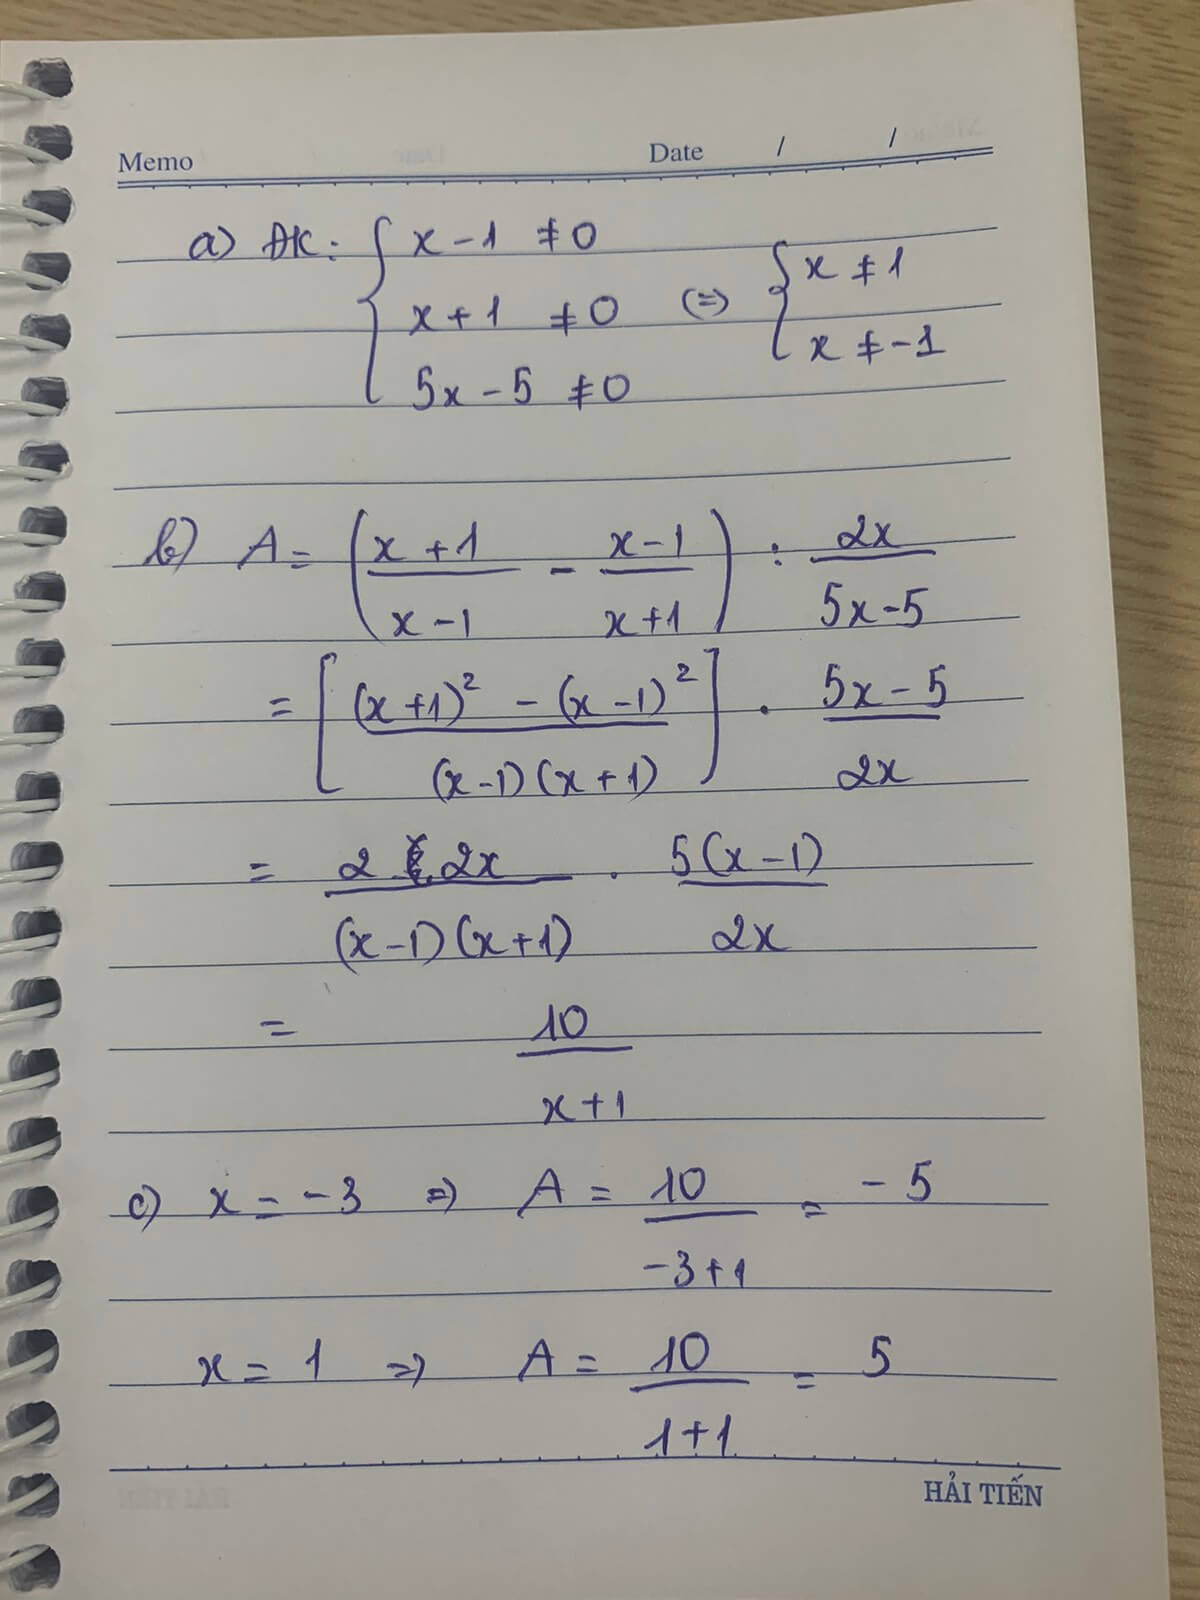 Memo Date / /
a) ĐK: { x - 1 ≠ 0
x + 1 ≠ 0 (=) { x ≠ 1
5x - 5 ≠ 0 x ≠ -1
b) A = ( (x + 1)/(x - 1) - (x - 1)/(x + 1) ) : 2x/(5x - 5)
= [ ((x + 1)² - (x - 1)²)/((x - 1)(x + 1)) ] . (5x - 5)/2x
= 2 . 2x/((x - 1)(x + 1)) . 5(x - 1)/2x
= 10/(x + 1)
c) x = -3 => A = 10/(-3 + 1) = -5
x = 1 => A = 10/(1 + 1) = 5
HẢI TIẾN